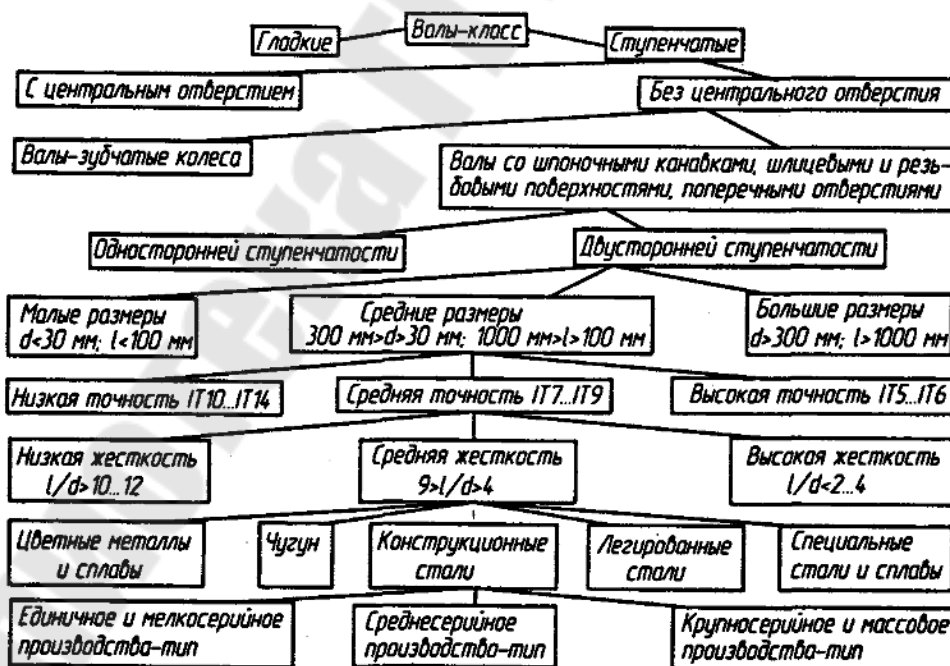 Валы-класс
Гладкие
Ступенчатые
С центральным отверстием
Без центрального отверстия
Валы-зубчатые колеса
Валы со шпоночными канавками, шлицевыми и резь-
бовыми поверхностями, поперечными отверстиями
Односторонней ступенчатости
Двусторонней ступенчатости
Малые размеры
d<30 мм; l<100 мм
Средние размеры
300 мм>d>30 мм; 1000 мм>l>100 мм
Большие размеры
d>300 мм; l>1000 мм
Низкая точность IT10...IT14
Средняя точность IT7...IT9
Высокая точность IT5...IT6
Низкая жесткость
l/d>10...12
Средняя жесткость
9>l/d>4
Высокая жесткость
l/d<2...4
Цветные металлы
и сплавы
Чугун
Конструкционные
стали
Легированные
стали
Специальные
стали и сплавы
Единичное и мелкосерийное
производства-тип
Среднесерийное
производство-тип
Крупносерийное и массовое
производства-тип